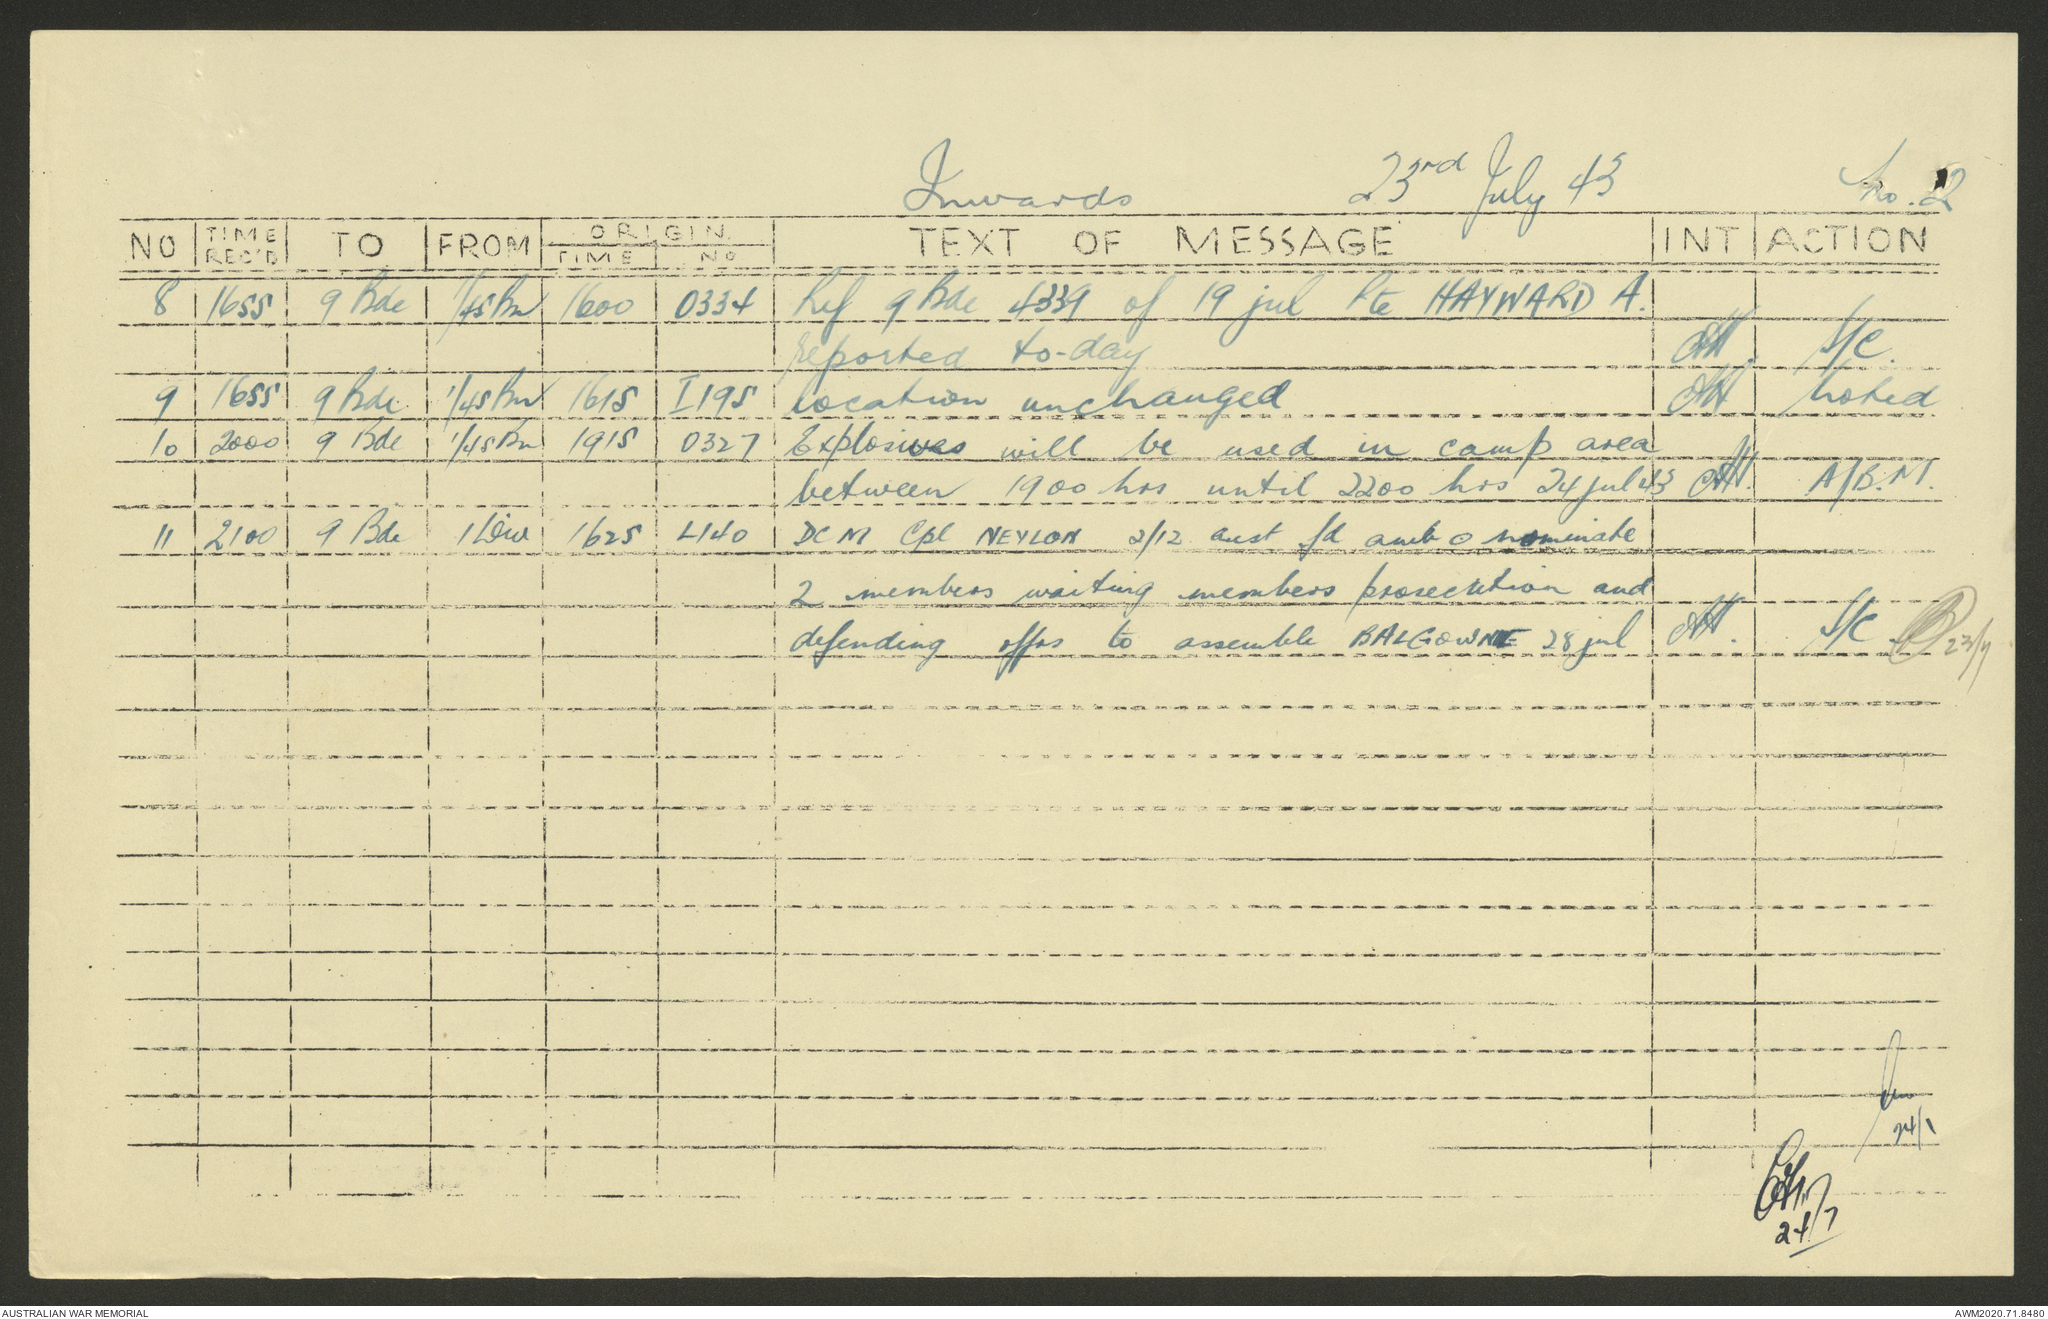 Inwards 23rd July 43 No. 2
NO TIME REC'D TO FROM ORIGIN TIME NO TEXT OF MESSAGE INT ACTION
8 1655 9 Bde 1/45 Bn 1600 0334 Ref 9 Bde 4339 of 19 jul Pte HAYWARD A.
reported to-day S/C.
9 1655 9 Bde 1/45 Bn 1615 I195 location unchanged noted
10 2000 9 Bde 1/45 Bn 1915 0327 Explosives will be used in camp area
between 1900 hrs until 2200 hrs 24 jul 43 A/B.M.
11 2100 9 Bde 1 Div 1625 L140 DCM Cpl NEYLON 2/12 aust fd amb o nominate
2 members waiting members prosecution and
defending offrs to assemble BALGOWNIE 28 jul S/C. 23/7
24/7
24/7
AUSTRALIAN WAR MEMORIAL AWM2020.71.8480